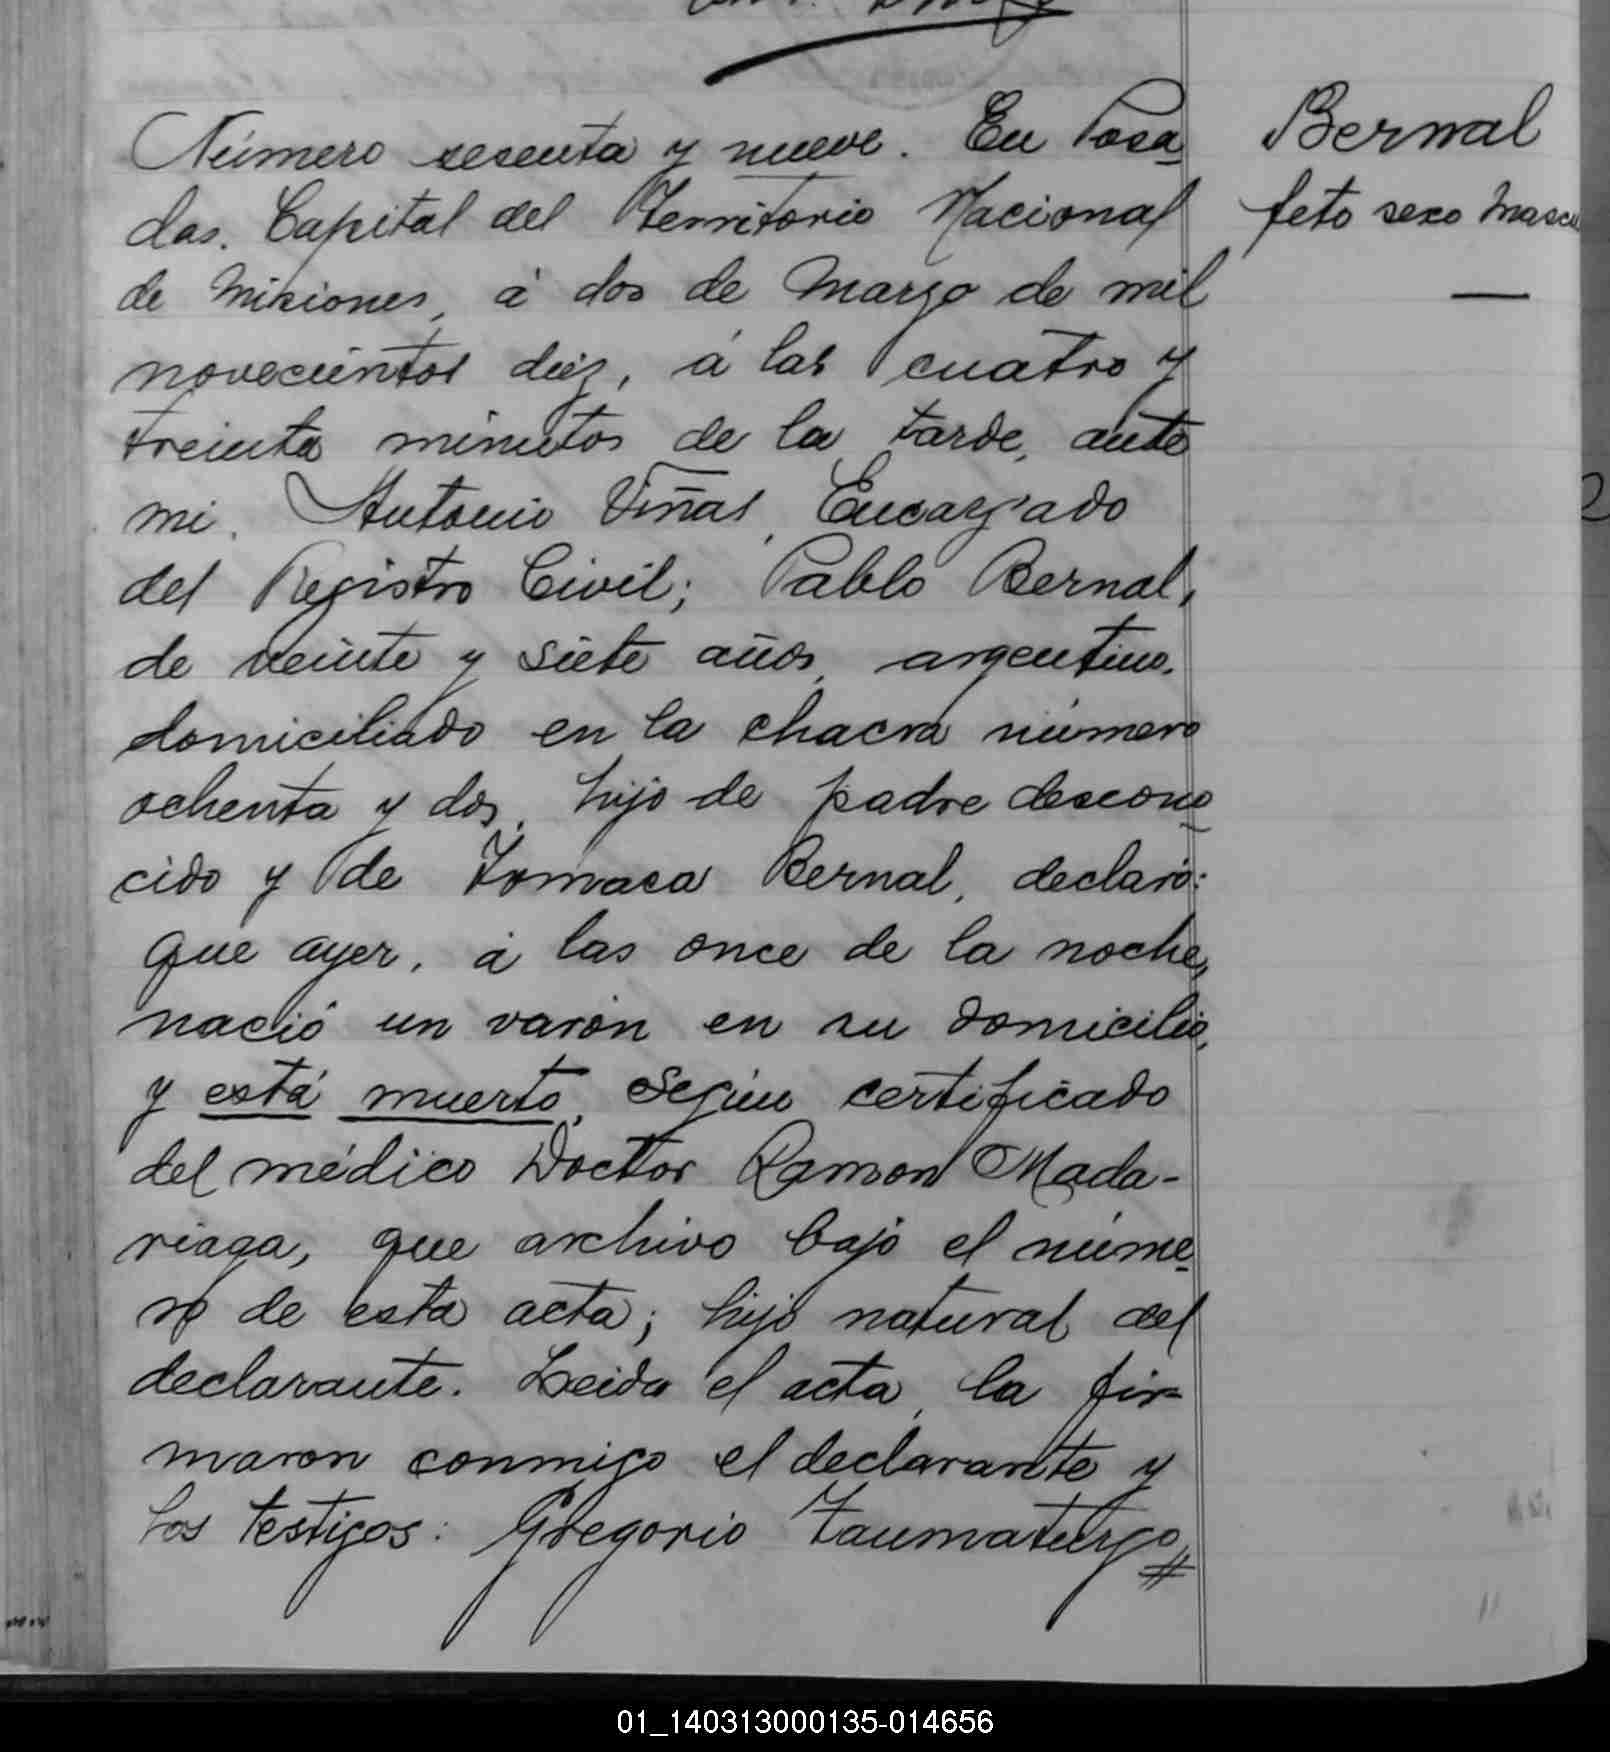 Número sesenta y nueve. En Posa
das. Capital del Territorio Nacional
de Misiones, á dos de Marzo de mil
novecientos diez, á las cuatro y
treinta minutos de la tarde, ante
mi. Antonio Viñas, Encargado
del Registro Civil; Pablo Bernal,
de veinte y siete años, argentino,
domiciliado en la chacra número
ochenta y dos, hijo de padre descono
cido y de Tomasa Bernal, declaró:
que ayer, á las once de la noche,
nació un varón en su domicilio,
y está muerto, según certificado
del médico Doctor Ramon Mada-
riaga, que archivo bajo el núme
ro de esta acta; hijo natural del
declarante. Leida el acta, la fir=
maron conmigo el declarante y
los testigos: Gregorio Taumaturgo
Bernal
feto sexo Mascu
01_140313000135-014656